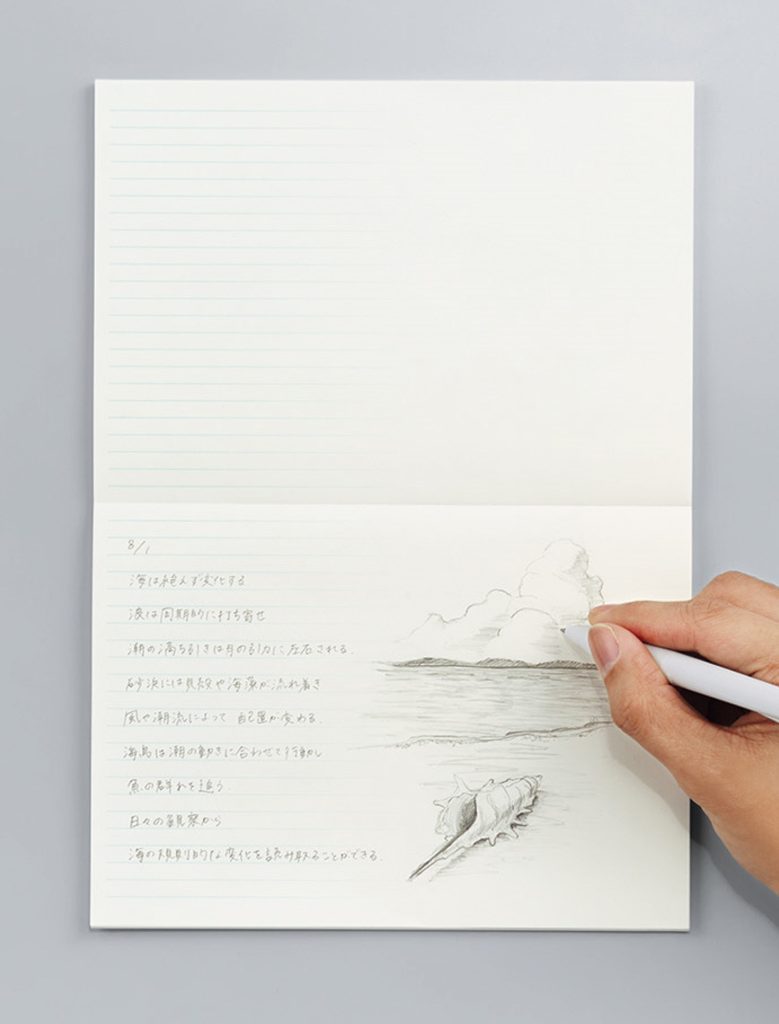 8/1
海は絶えず変化する
波は周期的に打ち寄せ
潮の満ち引きは月の引力に左右される.
砂浜には貝殻や海藻が流れ着き
風や潮流によって 配置が変わる.
海鳥は潮の動きに合わせて行動し
魚の群れを追う.
日々の観察から
海の規則的な変化を読み取ることができる.